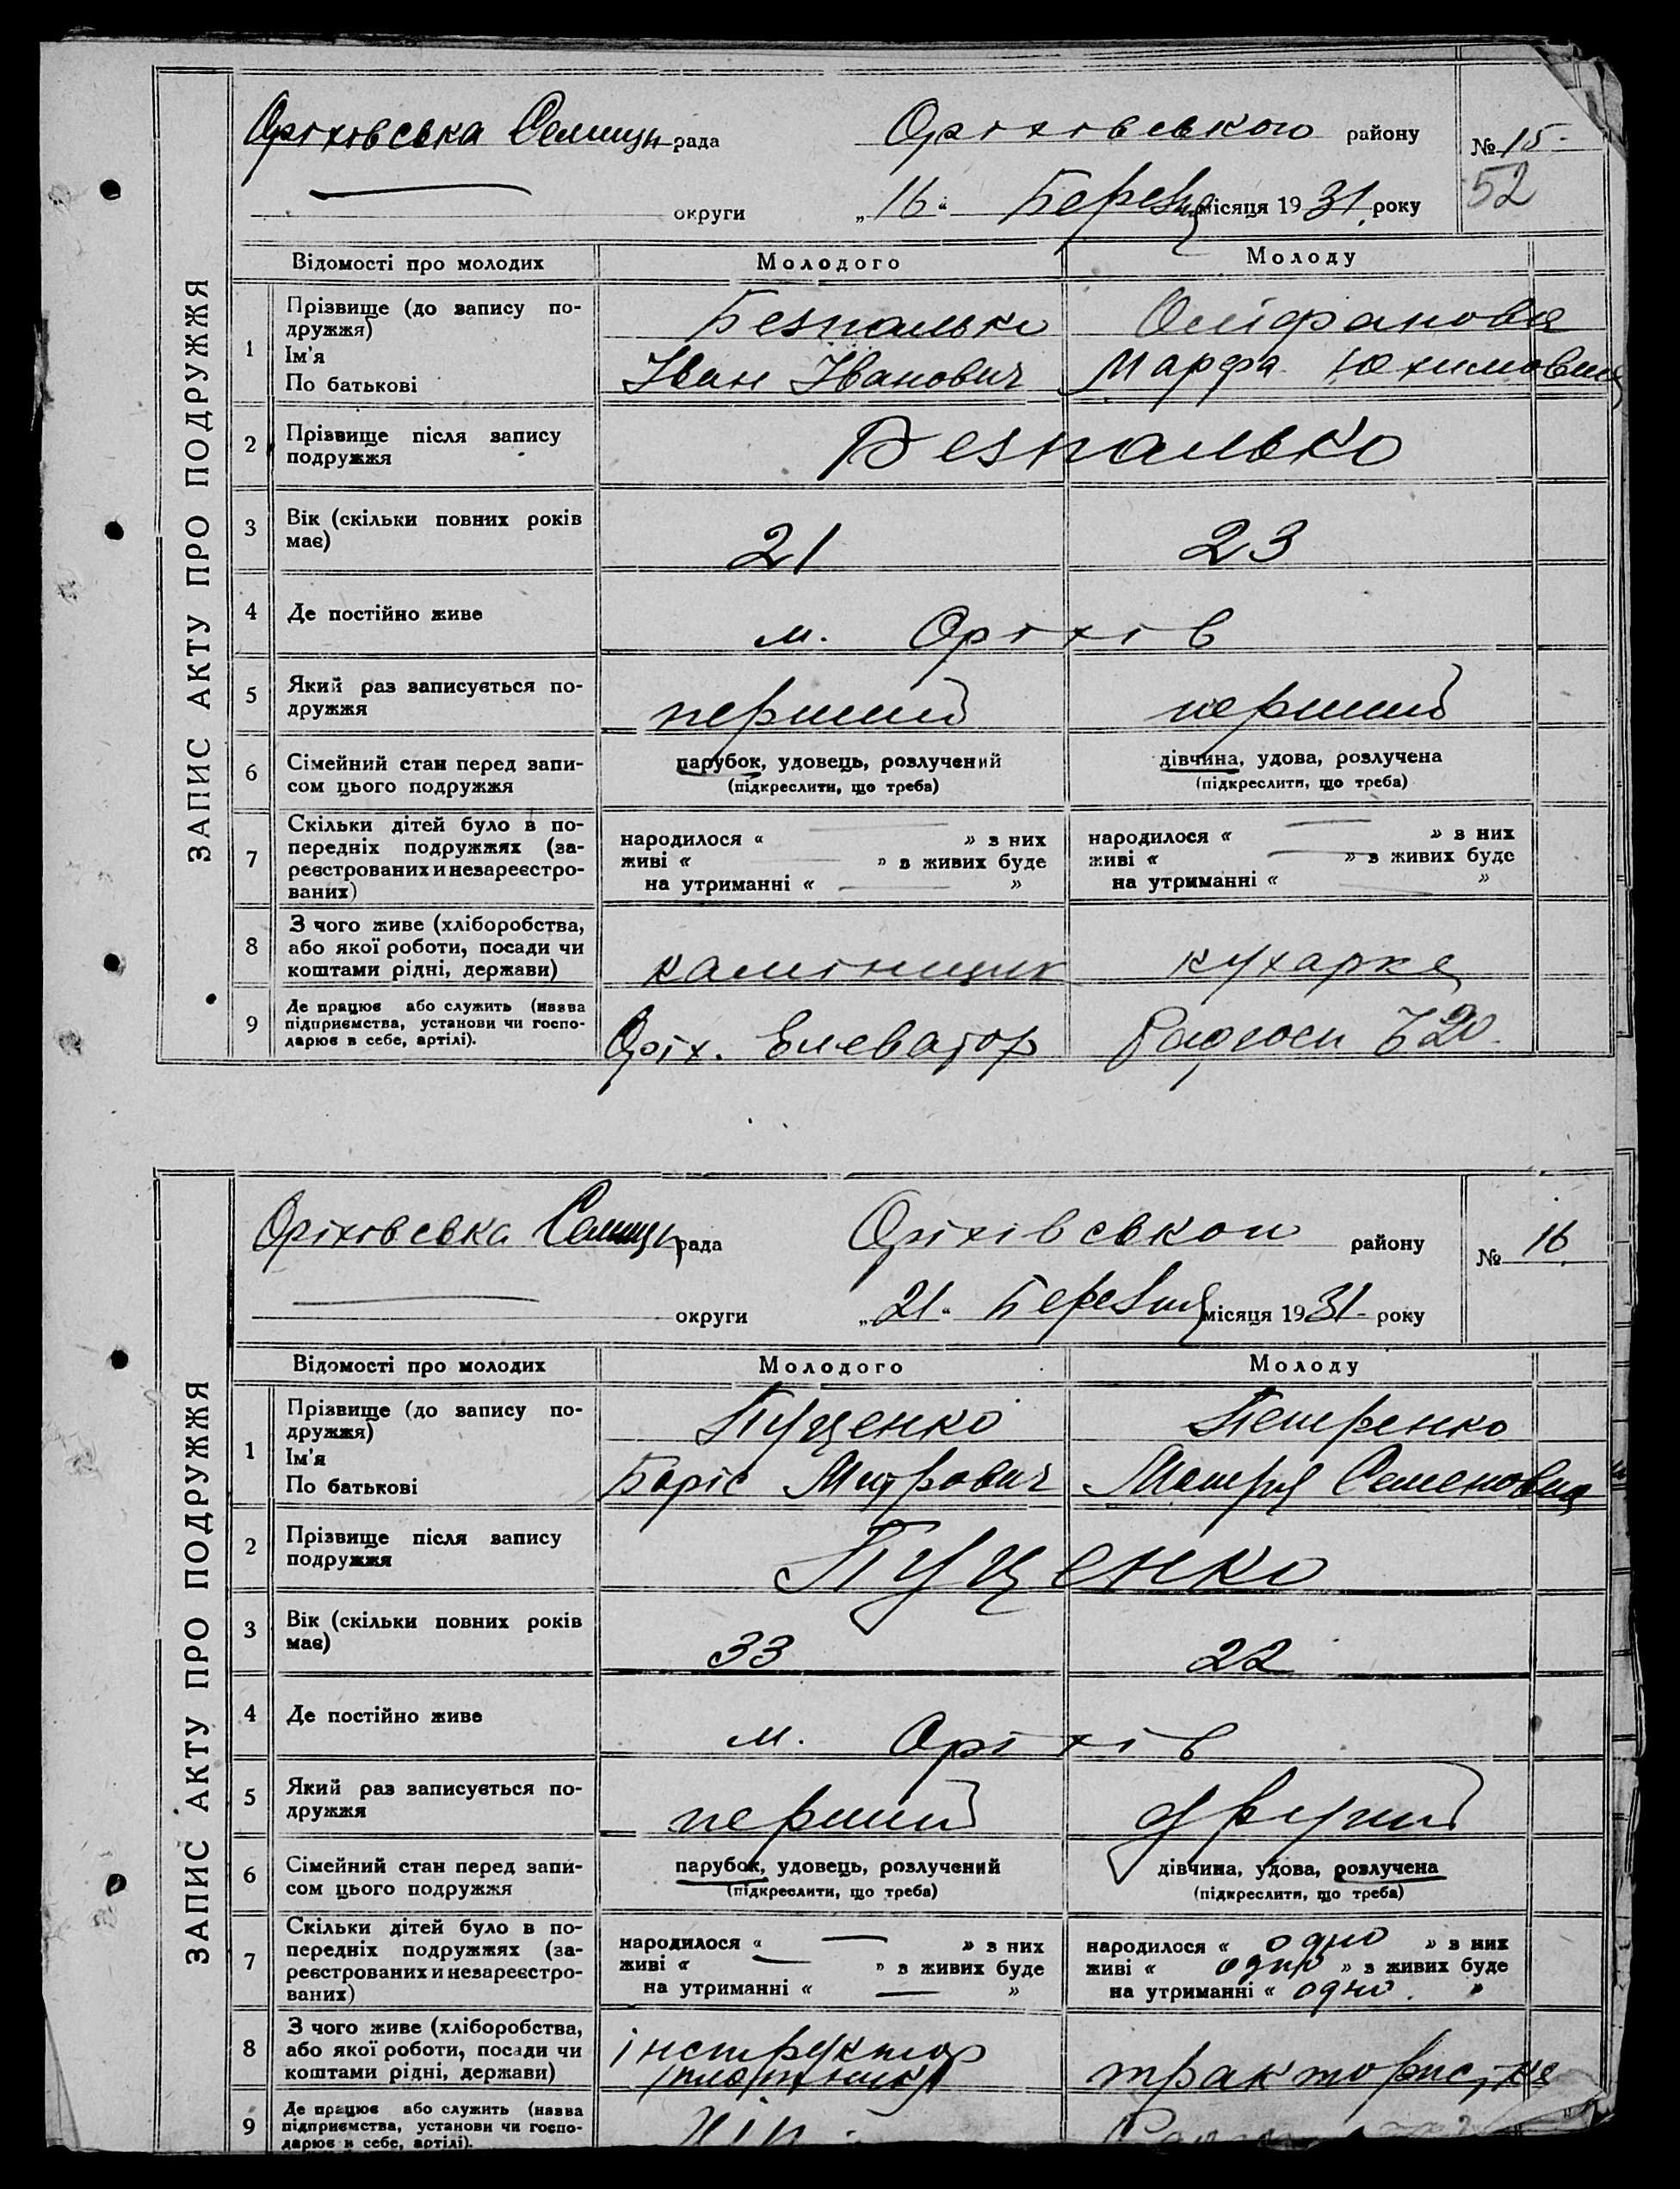 ЗАПИС АКТУ ПРО ПОДРУЖЖЯ
Оріхівська Селищн рада Оріхівського району № 15
52
округи „16“ Березня місяця 1931 року
Відомості про молодих Молодого Молоду
1 Прізвище (до запису по-
дружжя)
Ім'я
По батькові
Безпалько
Іван Іванович
Марфа Юхимовна
2 Прізвище після запису
подружжя
Безпалько
3 Вік (скільки повних років
має)
21 23
4 Де постійно живе
м. Оріхів
5 Який раз записується по-
дружжя
перший перший
6 Сімейний стан перед запи-
сом цього подружжя
парубок, удовець, розлучений
(підкреслити, що треба)
дівчина, удова, розлучена
(підкреслити, що треба)
7 Скільки дітей було в по-
передніх подружжях (за-
реєстрованих и незареєстро-
ваних)
народилося « » з них
живі « » з живих буде
на утриманні « »
народилося « » з них
живі « » з живих буде
на утриманні « »
8 З чого живе (хліборобства,
або якої роботи, посади чи
коштами рідні, держави)
камінщик кухарка
9 Де працює або служить (назва
підприємства, установи чи госпо-
дарює в себе, артілі).
Оріх. Елеватор Радгосп
ЗАПИС АКТУ ПРО ПОДРУЖЖЯ
Оріхівська Селищн рада Оріхівського району № 16
округи „21“ Березня місяця 1931 року
Відомості про молодих Молодого Молоду
1 Прізвище (до запису по-
дружжя)
Ім'я
По батькові
Пуценко Петренко
Боріс Митрович Мотря Семеновна
2 Прізвище після запису
подружжя
Пуценко
3 Вік (скільки повних років
має)
33 22
4 Де постійно живе
м. Оріхів
5 Який раз записується по-
дружжя
перший другий
6 Сімейний стан перед запи-
сом цього подружжя
парубок, удовець, розлучений
(підкреслити, що треба)
дівчина, удова, розлучена
(підкреслити, що треба)
7 Скільки дітей було в по-
передніх подружжях (за-
реєстрованих и незареєстро-
ваних)
народилося « » з них
живі « » з живих буде
на утриманні « »
народилося « одно » з них
живі « одно » з живих буде
на утриманні « одно. »
8 З чого живе (хліборобства,
або якої роботи, посади чи
коштами рідні, держави)
інструктор
трактористка
9 Де працює або служить (назва
підприємства, установи чи госпо-
дарює в себе, артілі).